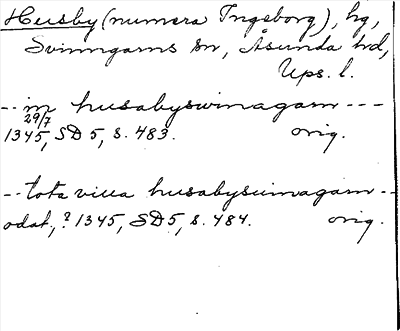 Husby (numera Ingeborg), hg,
Svinngarns sn, Åsunda hd,
Ups. l.
-- in husabyswinagarn ---
29/7
1345, SD 5, s. 483. orig.
-- tota villa husabysuinagarn --
odat., ? 1345, SD 5, s. 484. orig.